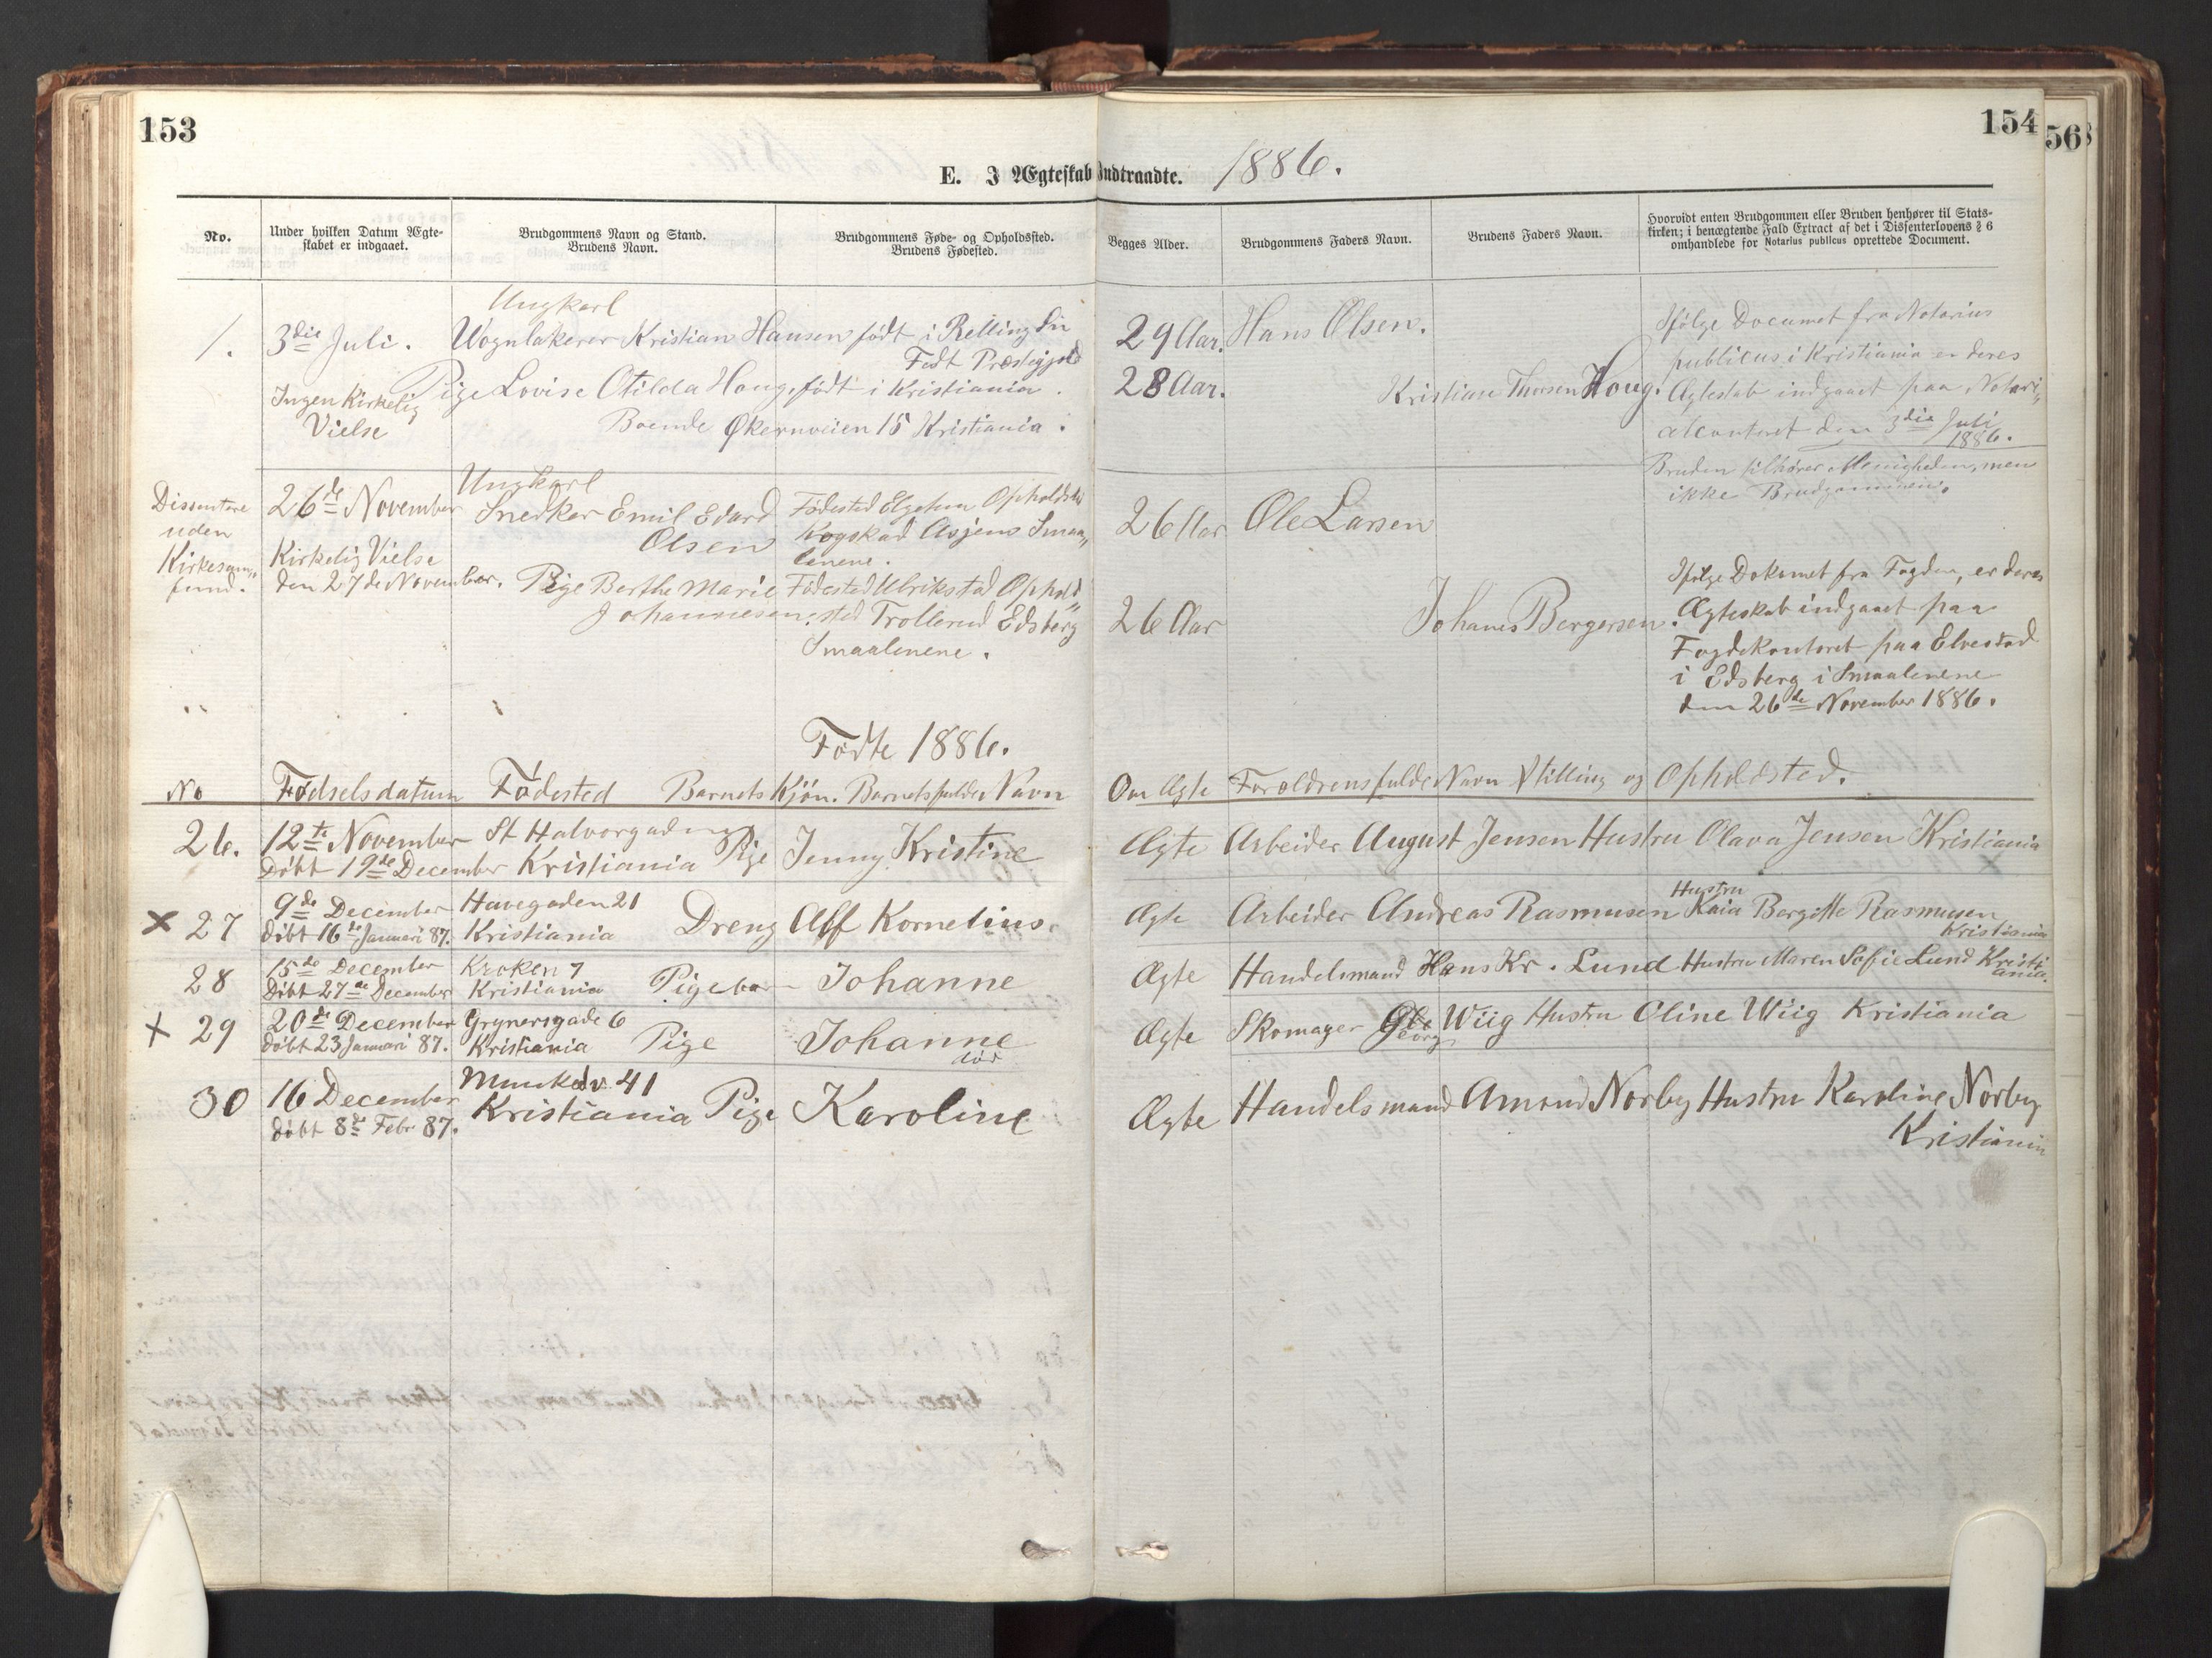 153
154
56
E. I Ægteskab Indtraadte. 1886.
No.
Under hvilken Datum Ægte-
skabet er indgaaet.
Brudgommens Navn og Stand.
Brudens Navn.
Brudgommens Føde- og Opholdssted.
Brudens Fødested.
Begges Alder.
Brudgommens Faders Navn.
Brudens Faders Navn.
Hvorvidt enten Brudgommen eller Bruden henhører til Stats-
kirken; i benægtende Fald Extract af det i Dissenterlovens § 6
omhandlede for Notarius publicus oprettede Document.
1. 3die Juli.
Ingen Kirkelig
Vielse
Ungkarl
Vognlakerer Kristian Hansen født i
Fedt Præstegjeld
Pige Lovise Otilda Houg, født i Kristiania.
Boende Økernveien 15 Kristiania.
29 Aar. Hans Olsen.
28 Aar. Kristian Thorsen Houg.
Ifølge Documet fra Notarius
publicus i Kristiania er deres
Ægteskab indgaaet paa Notari„
alcontoret den 3die Juli
1886.
Bruden tilhører Menigheden, men
ikke Brudgommen.
Dissentere
uden
Kirkesam„
fund.
26de November
Kirkelig Vielse
den 27de November.
Ungkarl
Snedker Emil Edard
Olsen
Fødested Opholdsted
Asjems Smaa„
lenene.
Pige Berthe Marie
Johannesen.
Fødested Ulrikstad Ophold„
sted Trollerud Edsberg
Smaalenene.
26 Aar Ole Larsen
26 Aar Johanes Bergersen.
Ifølge Dokumet fra Fogden, er deres
Ægteskab indgaaet paa
Fogdekontoret paa Elvestad
i Edsberg i Smaalenene
den 26de November 1886.
Fødte 1886.
No Fødselsdatum Fødested Barnets Kjøn. Barnets fulde Navn Om Ægte Foroldrens fulde Navn Stilling og Opholdsted.
26. 12te November St Halvorgaden
Døbt 19de December Kristiania Pige Jenny Kristine Ægte Arbeider August Jensen Hustru Olava Jensen Kristiania
x 27 9de December Havegaden 21
døbt 16de Januari 87. Kristiania Dreng Alf Kornelius. Ægte Arbeider Andreas Rasmusen Hustru Kaia Bergitte Rasmusen
Kristiania
28 15de December Kroken 7
Døbt 27de December Kristiania Pigebar- Johanne Ægte Handelsmand Hans Kr. Lund Hustru Maren Sofie Lund Kristi
ania.
x 29 20de December Grynersgade 6
døbt 23 Januari 87. Kristiania Pige Johanne Ægte Skomager Ole Wiig Hustru Oline Wiig Kristiania
Georg
død
30 16 December Munkedv. 41
døbt 8de Febr 87. Kristiania Pige Karoline Ægte Handelsmand Amund Norby Hustru Karoline Norby
Kristiania